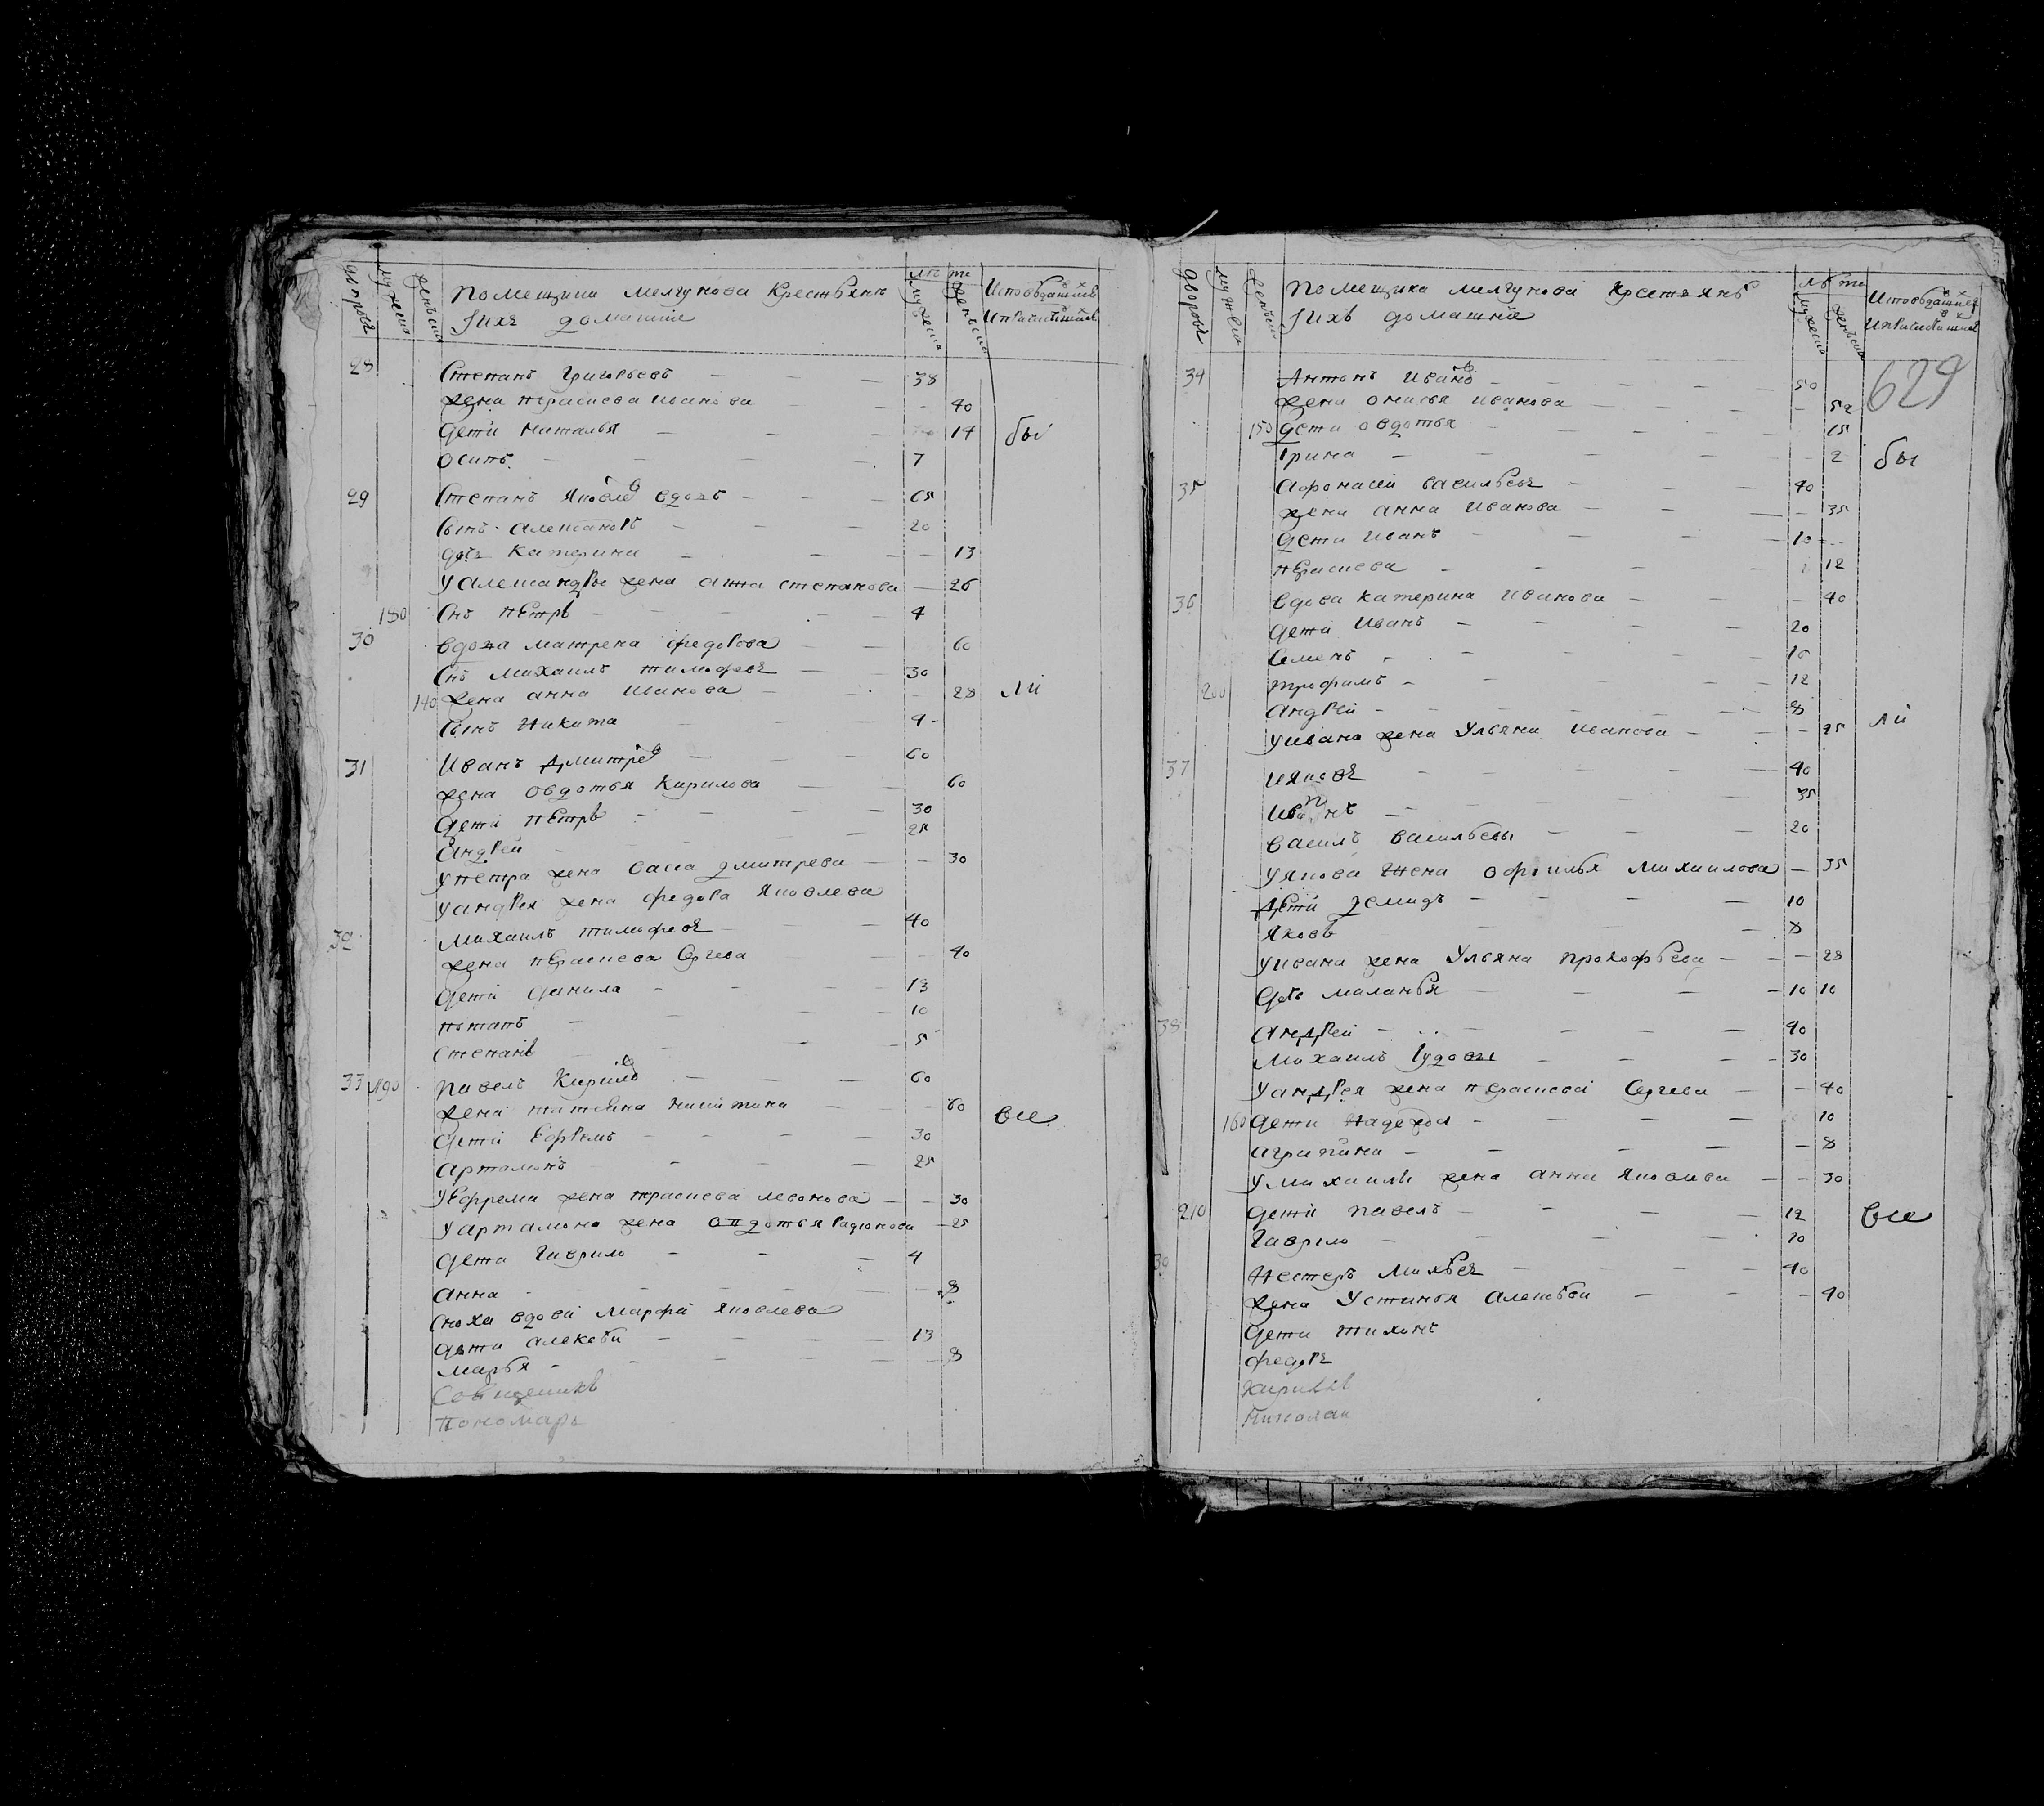 дворовъ мужеска женъска помещика мелгунова крестьянъ лѣта мужеска женъска Исповѣдавшихся
Iихъ домашнiе Ипричастившихся
28 Степанъ Григорьевъ — — — 38
жена праскева иванова — — — 40
дети наталья — — — 14 бы
осипъ — — — 7
29 Степанъ Яковлевъ вдовъ — — — 65
сынъ александръ — — — 20
дочь катерина — — — 13
у александры жена анна степанова — 26
180 Снъ пЕтръ — — — 4
30 вдова матрена федорова — — 60
Снъ михаилъ тимофеевъ — — 30
140 жена анна иванова — — 28 ли
сынъ никита — — 9
31 Иванъ Дмитревъ — — 60
жена овдотья кирилова — — 60
дети пЕтръ — — — 30
Андрей — — — 25
упетра жена васса дмитрева — — 30
уандрея жена федора Яковлева
32 михаилъ тимофеевъ — — 40
жена пЕраскева Сргева — — 40
дети данила — — — 13
потапъ — — — 10
степанъ — — — 5
33 190 павелъ Кириловъ — — — 60
жена татьяна никитина — — 60 все
дети Ефремъ — — — 30
артамонъ — — — 25
уЕфрема жена праскева левонова — — 30
у артамона жена овдотья радионова — 25
дети гаврило — — — 4
анна — — — 8
сноха вдова Марфа яковлева
дети алексѣй — — — 13
марья — — — 8
Священникъ
Пономарь
дворовъ мужеска женъска помещика мелгунова крестьянъ лѣта мужеска женъска Исповѣдавшихся
Iихъ домашнiе Ипричастившихся
629
34 Антонъ Ивановъ — — — 50
жена онисья иванова — — — 52
150 дети овдотья — — — 15
Iрина — — — 2 бы
35 афонасей васильевъ — — 40
жена анна Иванова — — — 35
дети Иванъ — — — 10
пЕраскева — — — 12
36 вдова катерина Иванова — — 40
дети Иванъ — — — 20
Семенъ — — — 16
200 трофимъ — — — 12
андрей — — — 8
уивана жена Ульяна иванова — — 25 ли
37 иЯковъ — — — 40
Иванъ — — — 35
василъ васильевы — — 20
уякова жена офимья михаилова — 35
дѣти демидъ — — — 10
Яковъ — — — 8
уивана жена Ульяна прокофьева — — 28
дочь маланья — — — 10 10
38 андрей — — — 40
михаилъ — — — 30
уандрея жена пЕраскева Сргева — — 40
160 дети надежда — — — 10
агрипина — — — 8
умихаилы жена анна яковлева — — 30
210 дети павелъ — — — 12 все
гаврило — — — 10
39 нестеръ михѣевъ — — — 40
жена Устинья алексѣева — — 40
дети тихонъ
федоръ
Кирилъ
Николаи